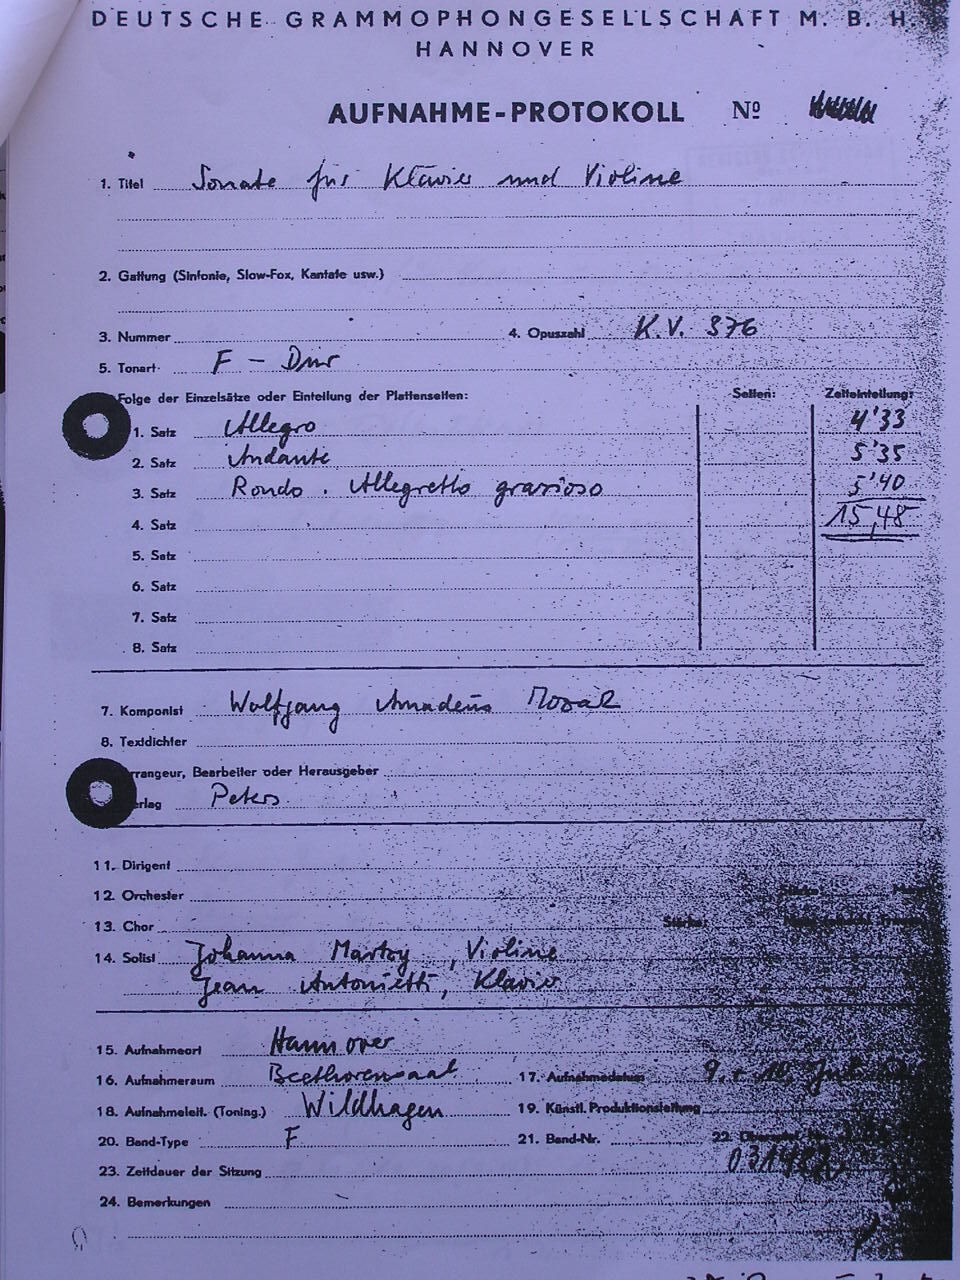 DEUTSCHE GRAMMOPHONGESELLSCHAFT M. B. H.
HANNOVER
AUFNAHME-PROTOKOLL Nº
1. Titel Sonate für Klavier und Violine
2. Gattung (Sinfonie, Slow-Fox, Kantate usw.)
3. Nummer 4. Opuszahl K.V. 376
5. Tonart F - Dur
Folge der Einzelsätze oder Einteilung der Plattenseiten: Seiten: Zeiteinteilung:
1. Satz Allegro 4'33
2. Satz Andante 5'35
3. Satz Rondo. Allegretto grazioso 5'40
4. Satz 15,48
5. Satz
6. Satz
7. Satz
8. Satz
7. Komponist Wolfgang Amadeus Mozart
8. Textdichter
rrangeur, Bearbeiter oder Herausgeber
erlag Peters
11. Dirigent
12. Orchester
13. Chor Stärke:
14. Solist Johanna Martzy, Violine
Jean Antonietti, Klavier
15. Aufnahmeort Hannover
16. Aufnahmeraum Beethovensaal 17. Aufnahmedatum 9. + 10. Juli
18. Aufnahmeleit. (Toning.) Wildhagen 19. Künstl. Produktionsleitung
20. Band-Type F 21. Band-Nr. 22.
23. Zeitdauer der Sitzung
24. Bemerkungen